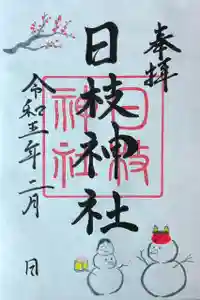 奉拝
日枝神社
日枝
神社
令和五年二月 日